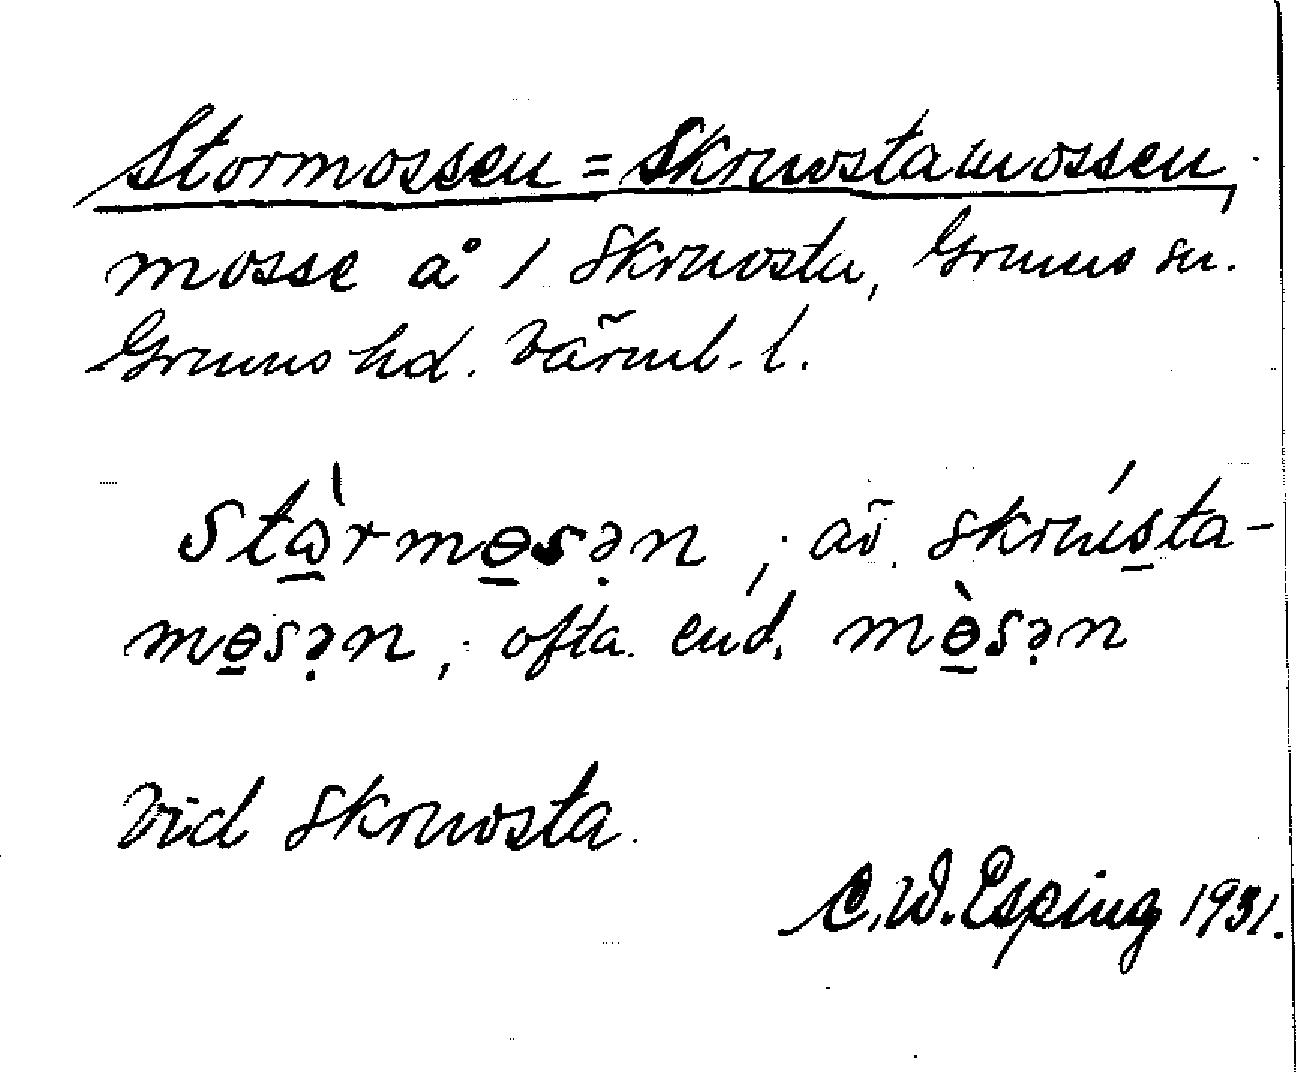 Stormossen = Skruvstamossen,
mosse å 1 Skruvsta, Grums sn.
Grums hd. Värml. l.
stὼ̱rmɵ̱sə̣n, äv. skrús̱ta-
mɵ̱sə̣n, ofta end. mɵ̱̀sə̣n
Vid Skruvsta.
C.W. Esping 1931.